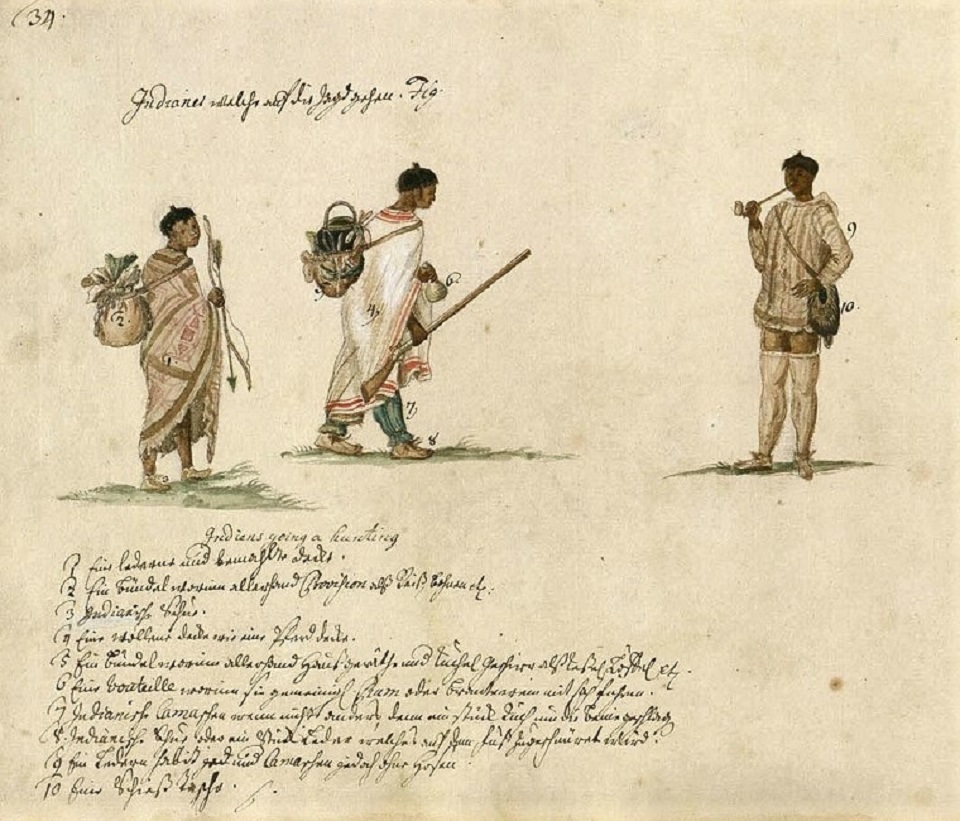 (34.
Indianer welche auf die Jagd gehen. Fig.
9
6
2
3
4
10.
1
7
8
3
Indians going a hunting
1 Ein lederne und bemahlte decke.
2 Ein bündel worinn allerhand Provision als Reiß, bohnen etc.
3 Indianische Schue.
4 Eine wollene decke wie eine Pferd decke.
5 Ein bündel worinn allerhand Hausgeräthe und Küchel geschirr als Kessel Löffel etc.
6 Eine bouteille worinn sie gemeinigl. Rum oder brantewein mit sich fuhren.
7 Indianische Camaschen wenn nicht anders denn ein stück tuch um die beine geschlag
8 Indianische Schue oder ein stück Leder welches auf dem fuß zugeschnüret wird.
9 Ein Ledern habit und Camaschen jedoch ohne Hosen
10 Eine Schieß Tasche.